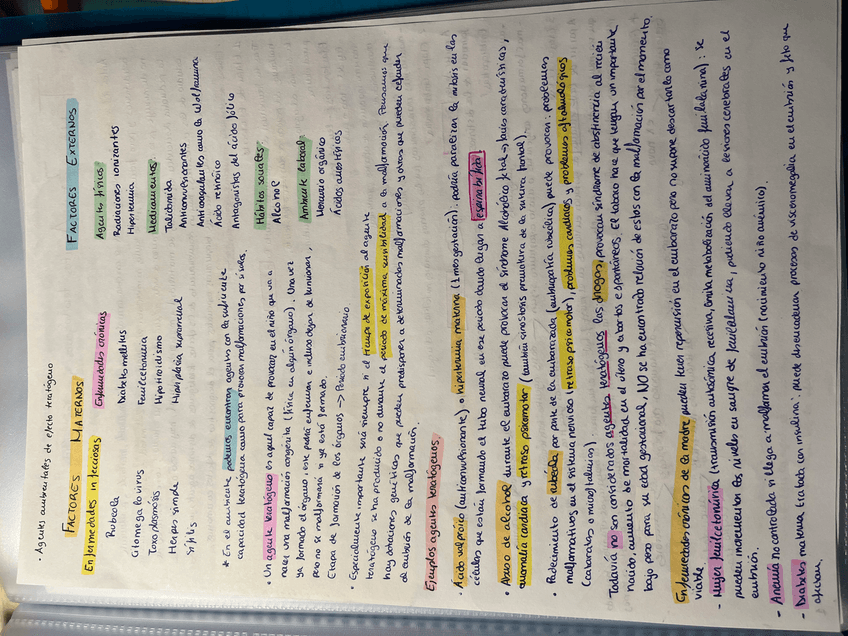 · Agentes ambientales de efecto teratógeno
FACTORES MATERNOS
Enfermedades infecciosas
Rubeola
Citomegalovirus
Toxoplasmosis
Herpes simple
Sífilis
Enfermedades crónicas
Diabetes mellitus
Fenilcetonuria
Hipotiroidismo
Hiperplasia suprarrenal
FACTORES EXTERNOS
Agentes físicos
Radiaciones ionizantes
Hipertermia
Medicamentos
Talidomida
Anticonvulsionantes
Anticoagulantes como la Warfarina
Ácido retinoico
Antagonistas del ácido fólico
Hábitos sociales
Alcohol
Ambiente laboral
Mercurio orgánico
Ácidos anestésicos
* En el ambiente podemos encontrar agentes con la suficiente
capacidad teratógena como para provocar malformaciones por sí solos.
· Un agente teratógeno es aquel capaz de provocar en el niño que va a
nacer, una malformación congénita (física en algún órgano). Una vez
ya formado el órgano, este podrá enfermar e incluso dejar de funcionar,
pero no se malformará si ya está formado.
Etapa de formación de los órganos → Periodo embrionario
· Especialmente importante será siempre si el tiempo de exposición al agente
teratógeno se ha producido o no durante el periodo de máxima sensibilidad a la malformación. Pensemos que
hay dotaciones genéticas que pueden predisponer a determinadas malformaciones y otros que pueden defender
al embrión de la malformación.
Ejemplos agentes teratógenos
· Ácido valproico (anticonvulsionante) o hipertermia materna (1 mes gestación): podría paralizar la mitosis en las
células que están formando el tubo neural en ese periodo dando lugar a espina bífida.
· Abuso de alcohol durante el embarazo puede provocar el síndrome Alcohólico fetal → facies características,
anomalía cardiaca y retraso psicomotor (también sinostosis prematura de la sutura frontal).
· Padecimiento de rubeola por parte de la embarazada (embriopatía rubeólica) puede provocar: problemas
malformativos en el sistema nervioso (retraso psicomotor), problemas cardiacos y problemas oftalmológicos
(cataratas o microftalmias).
Todavía no son considerados agentes teratógenos las drogas, provocan síndrome de abstinencia al recién
nacido, aumento de mortalidad en el útero y abortos espontáneos. El tabaco hace que tengan un importante
bajo peso para su edad gestacional, NO se ha encontrado relación de estos con la malformación por el momento.
Enfermedades crónicas de la madre pueden tener repercusión en el embarazo pero no supone descartarlo como
viable
- Mujer fenilcetonúrica (transmisión autosómica recesiva, limita metabolización del aminoácido fenilalanina): se
pueden incrementar los niveles en sangre de fenilalanina, pudiendo llevar a lesiones cerebrales en el
embrión.
- Anemia no controlada sí llega a malformar el embrión (nacimiento niño anémico).
- Diabetes materna, tratada con insulina: puede desencadenar procesos de visceromegalia en el embrión y feto que
afectan.